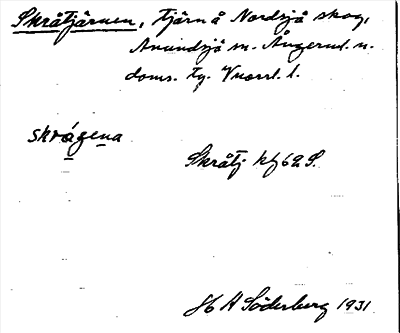 Skråtjärnen, tjärn å Nordsjö skog,
Anundsjö sn. Ångerml. n.
doms. tg. Vnorrl. l.
skrågena
Skråtj kf 62 S.
H A Söderberg 1931